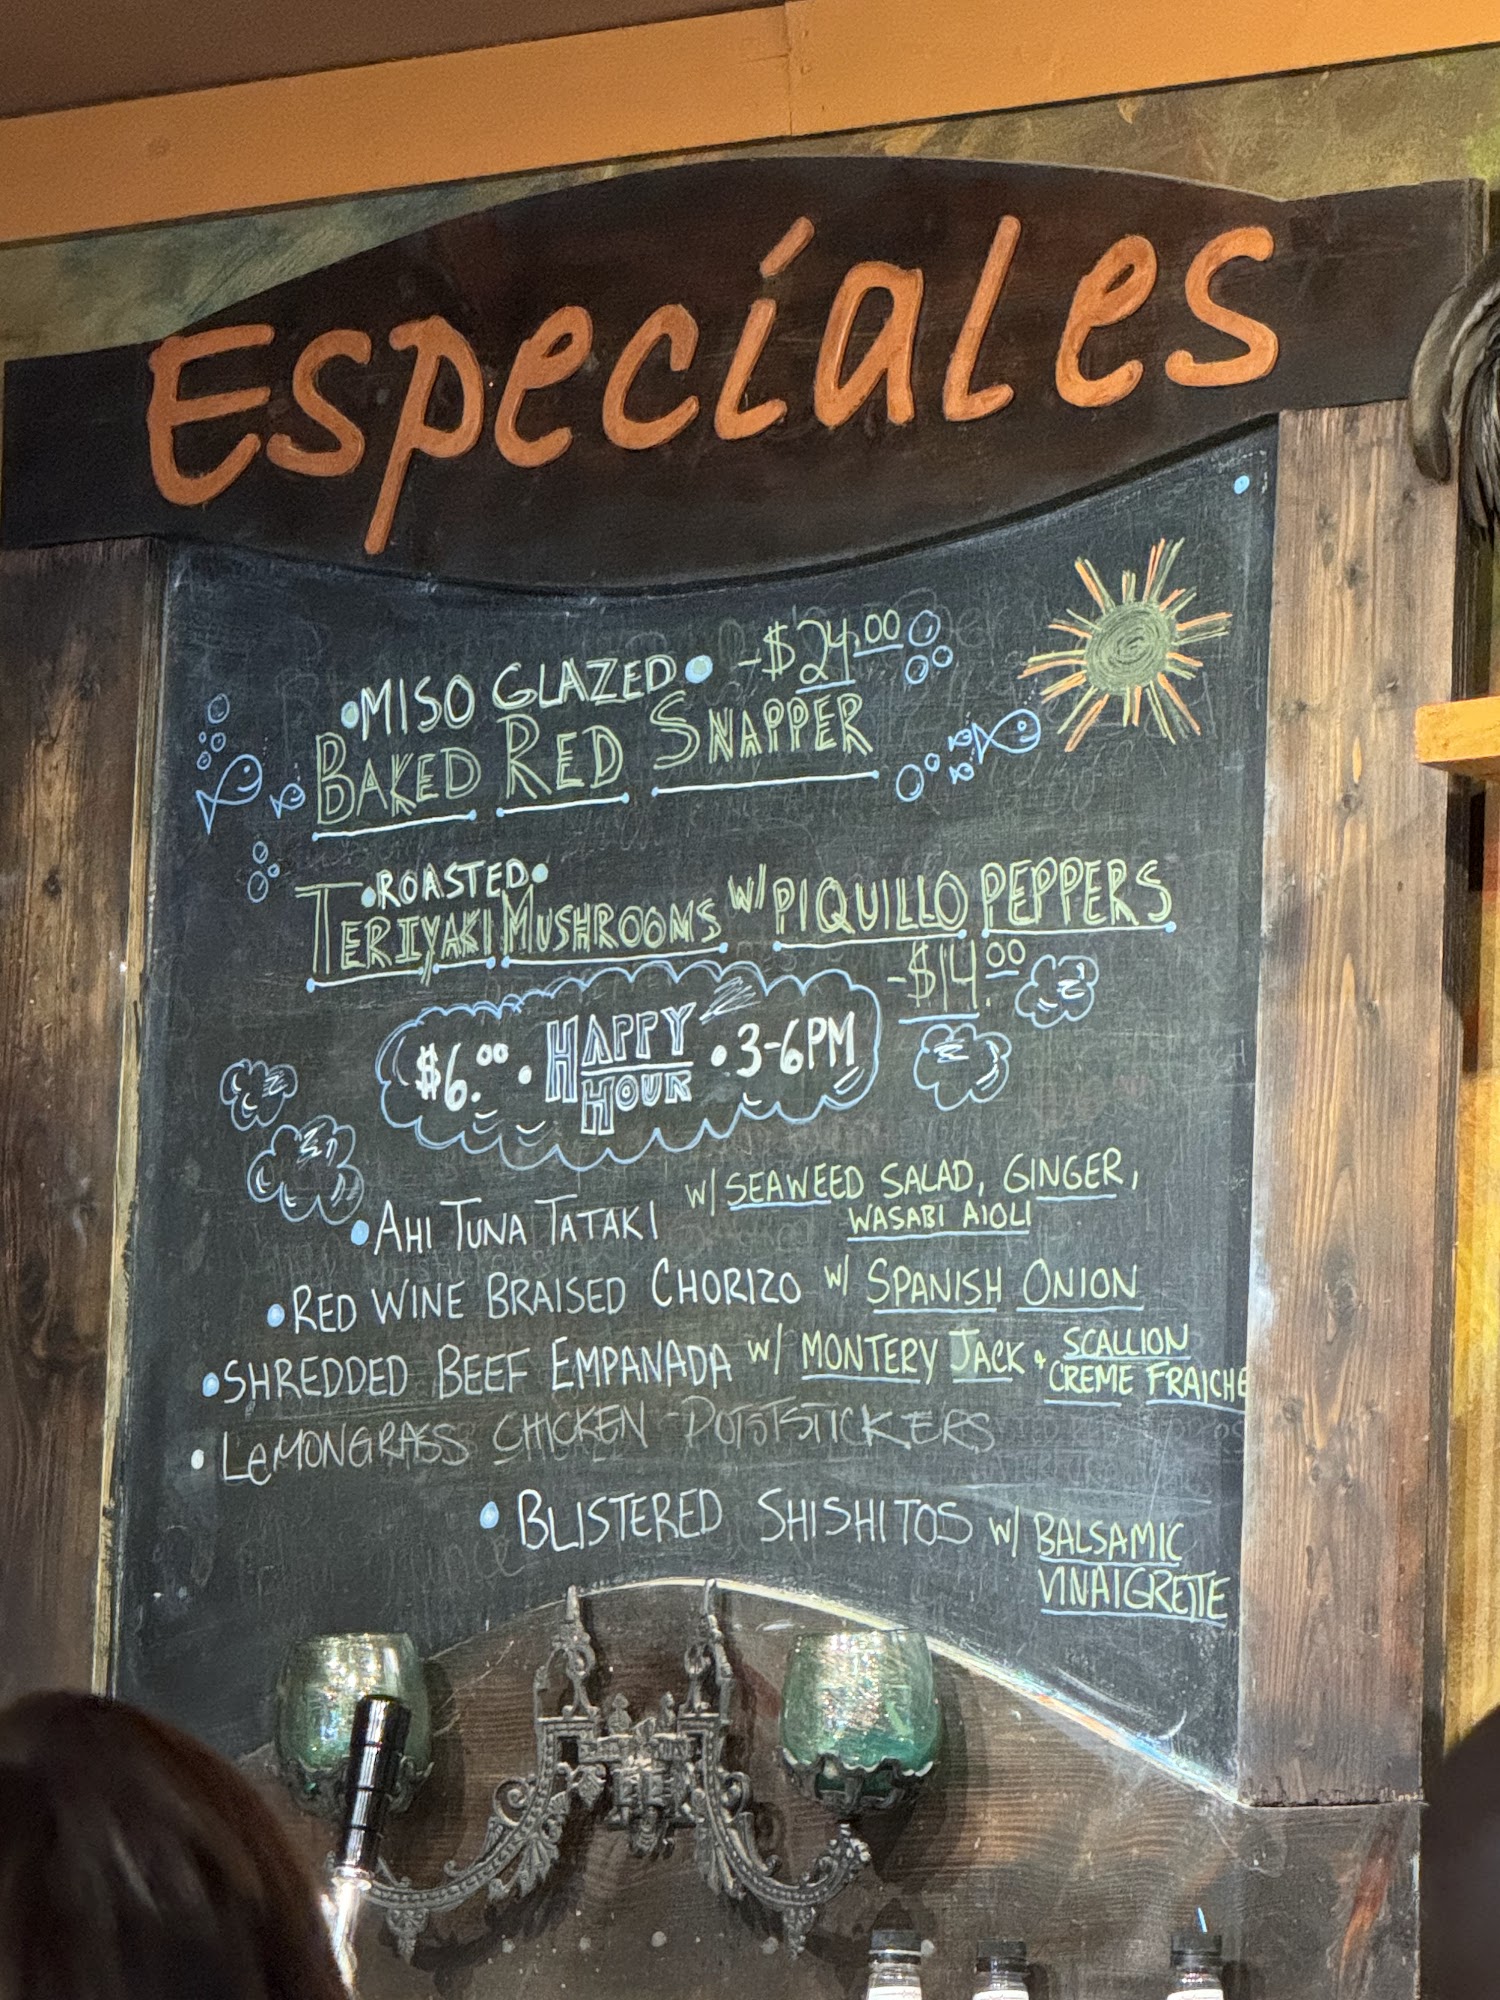 Especiales
•MISO GLAZED• -$24.00
BAKED RED SNAPPER
•ROASTED•
TERIYAKI MUSHROOMS W/ PIQUILLO PEPPERS
-$14.00
$6.00 • HAPPY HOUR • 3-6PM
•AHI TUNA TATAKI W/ SEAWEED SALAD, GINGER,
WASABI AIOLI
•RED WINE BRAISED CHORIZO W/ SPANISH ONION
•SHREDDED BEEF EMPANADA W/ MONTERY JACK + SCALLION
CREME FRAICHE
•LeMONGRASS CHICKEN POTSTSTICKERS
•BLISTERED SHISHITOS W/ BALSAMIC
VINAIGRETTE